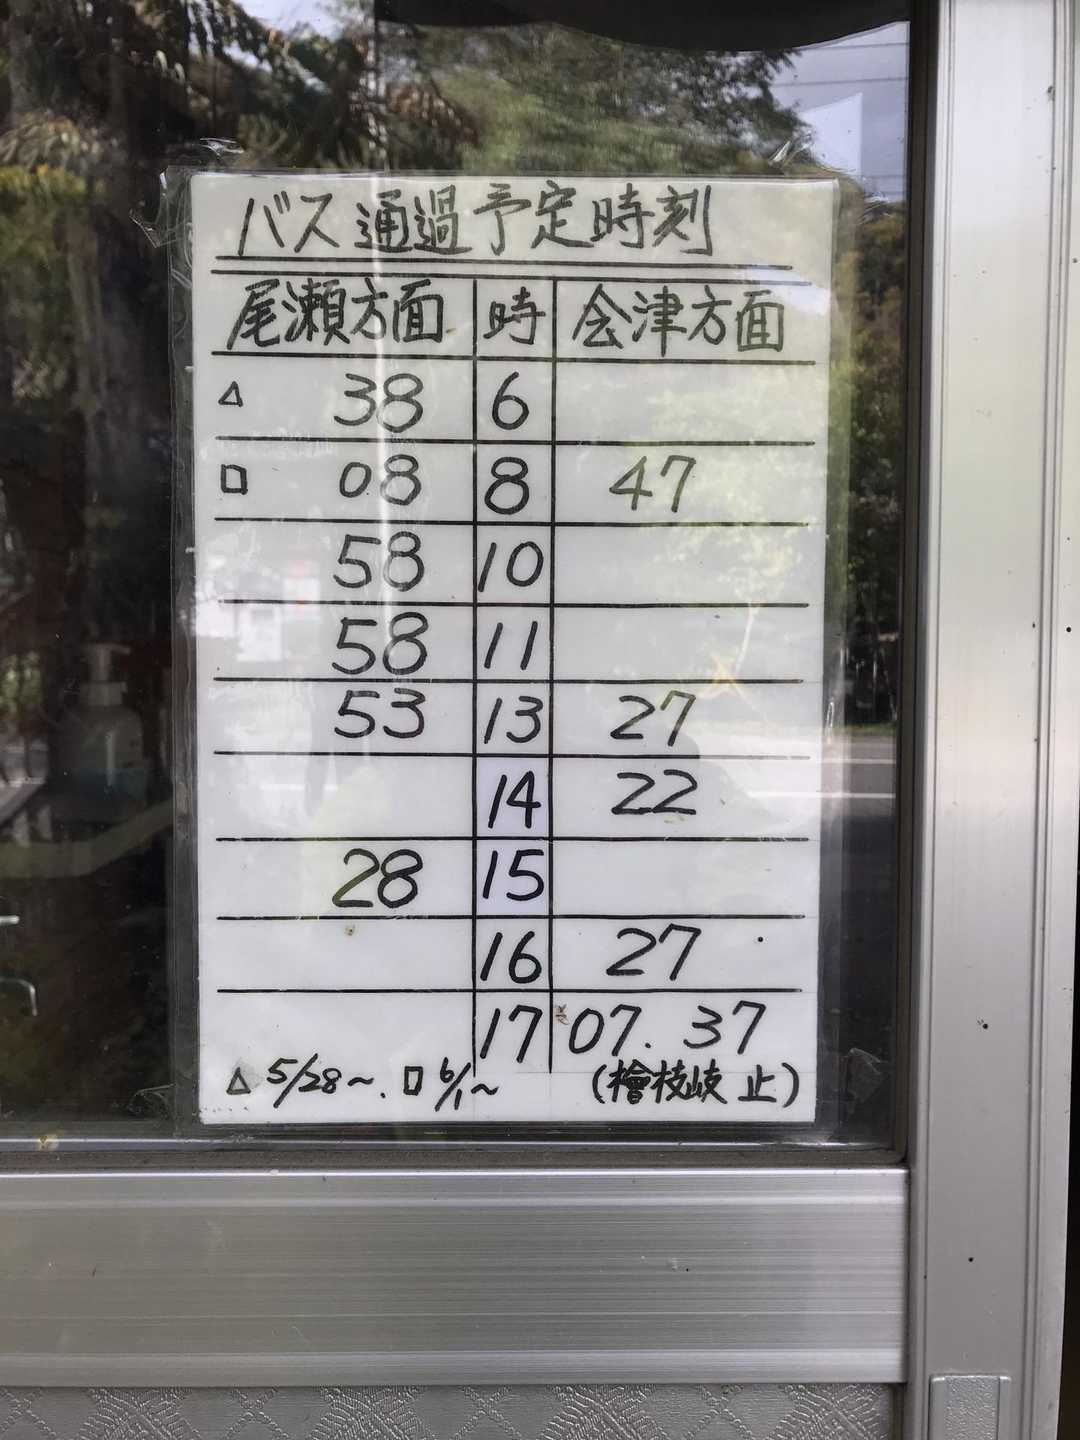 バス通過予定時刻
尾瀬方面 時 会津方面
△ 38 6
□ 08 8 47
58 10
58 11
53 13 27
14 22
28 15
16 27
17 07. 37
△ 5/28~. □ 6/1~ (檜枝岐 止)